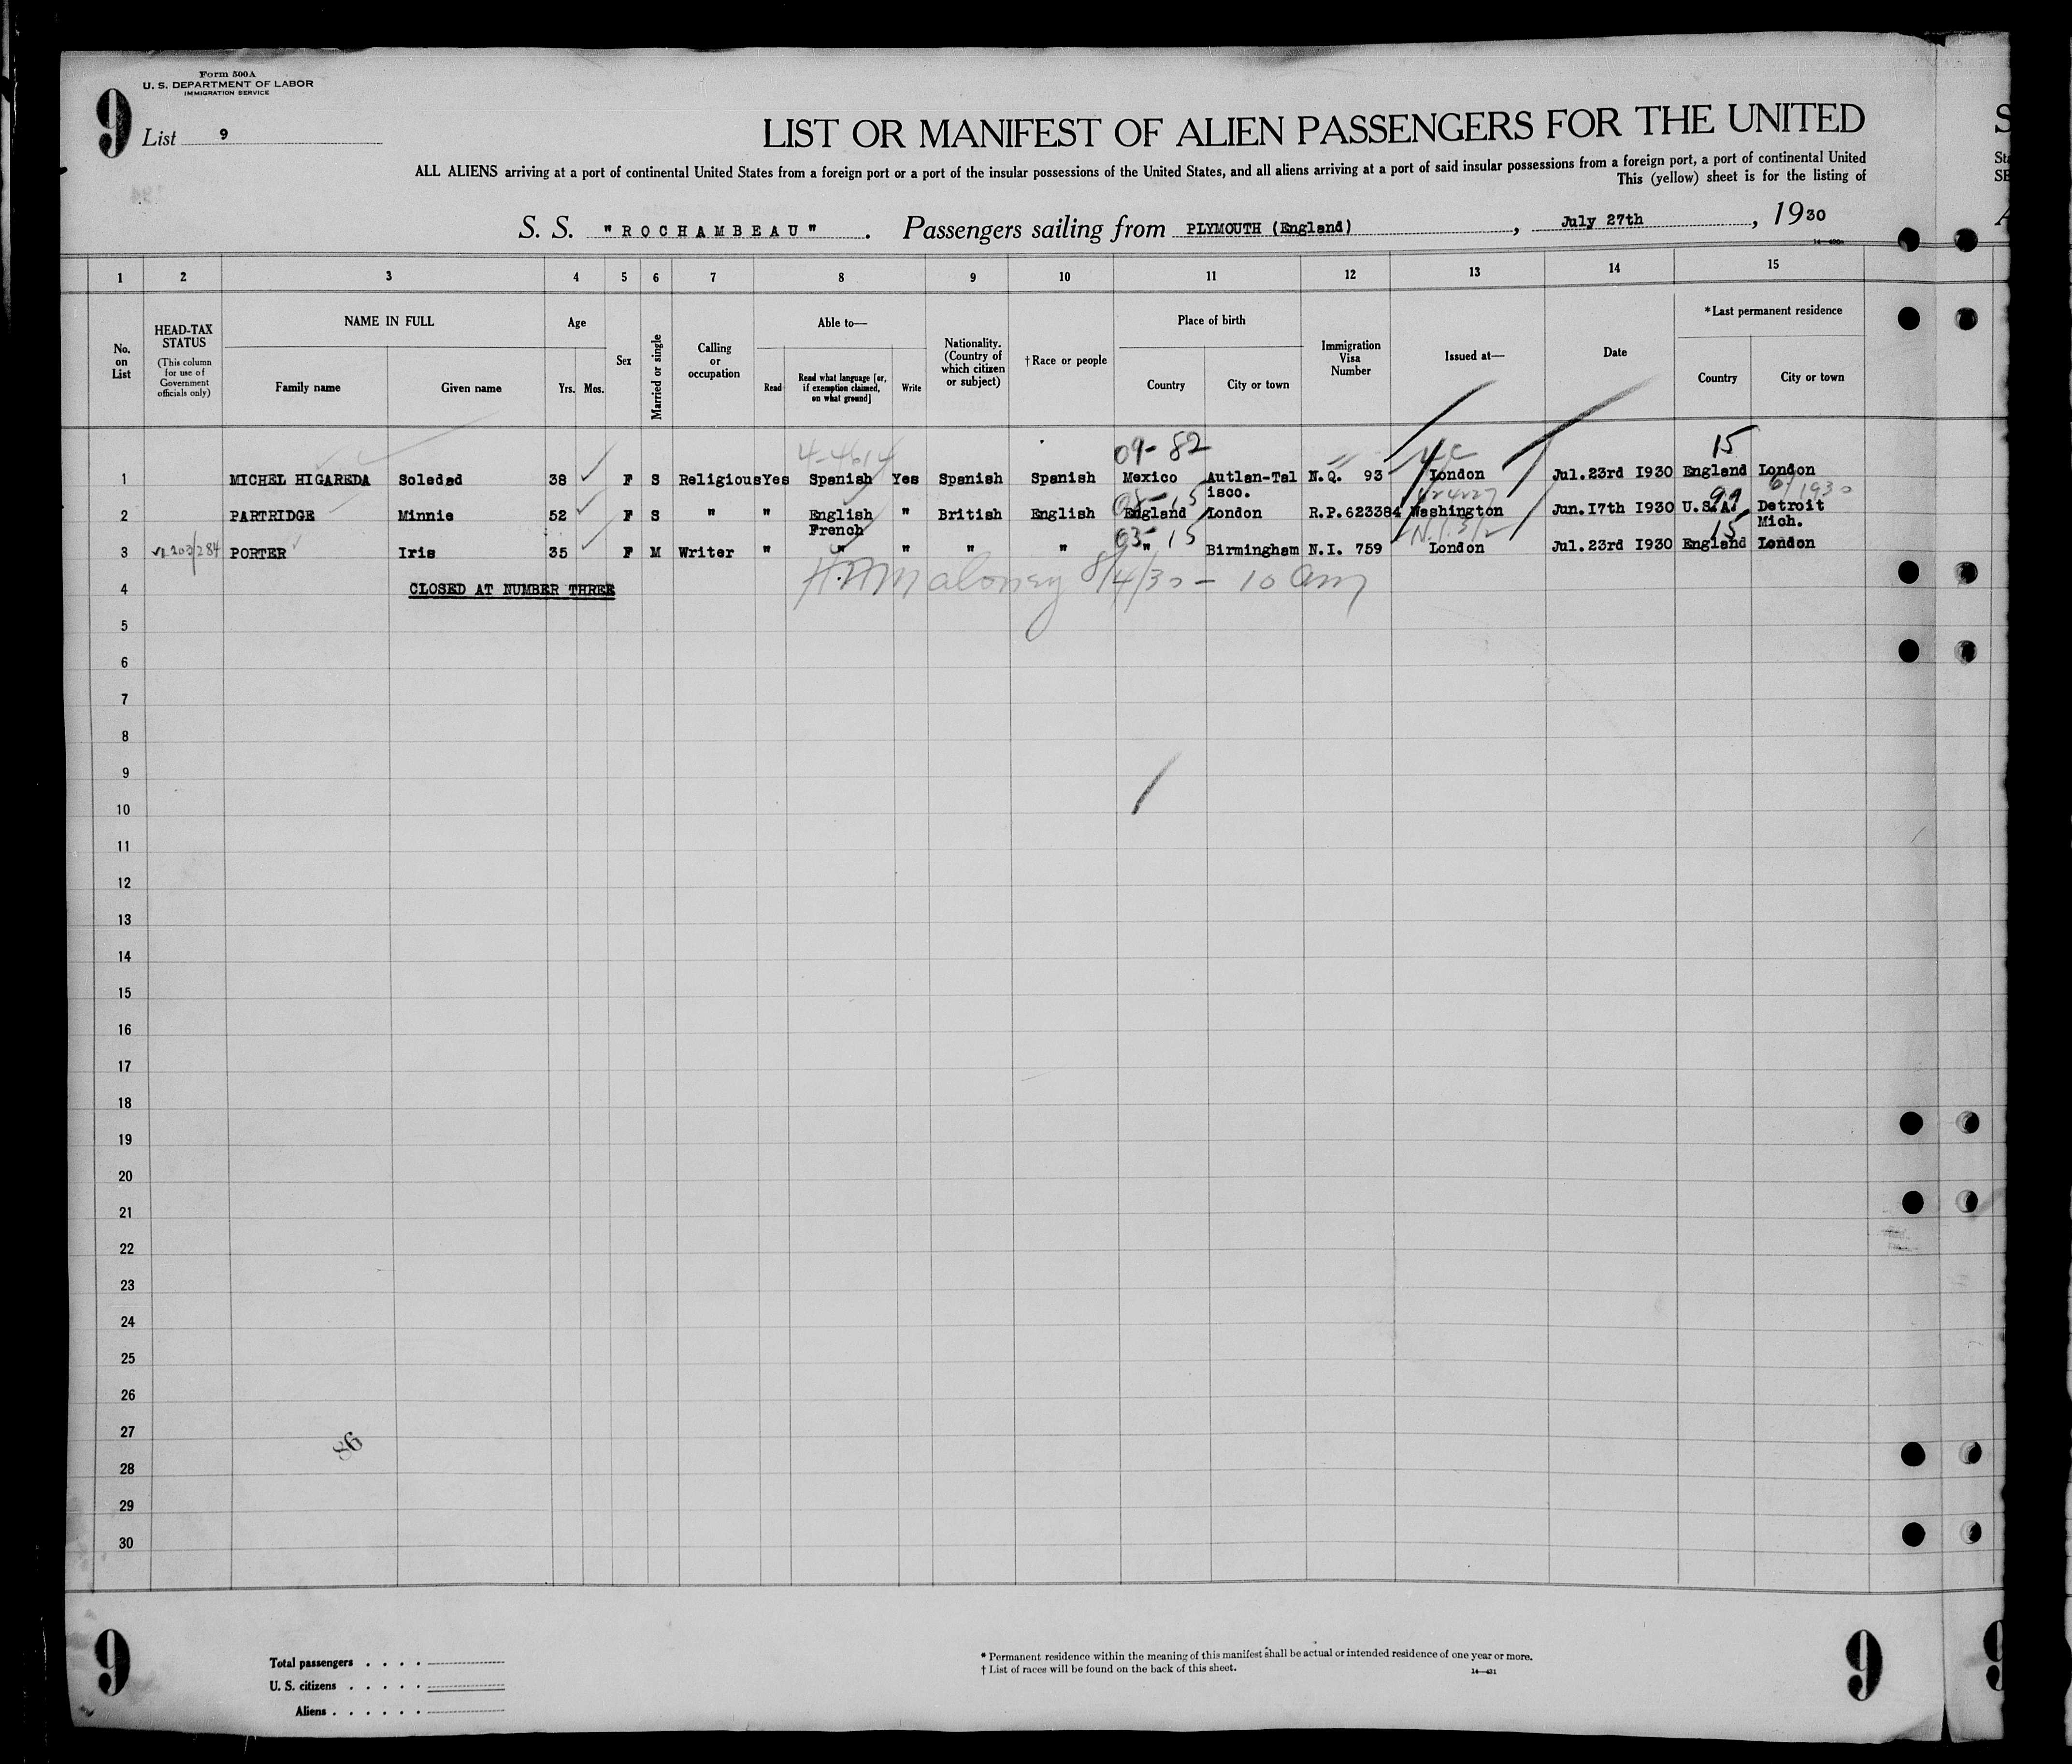 Form 500A
U. S. DEPARTMENT OF LABOR
IMMIGRATION SERVICE
9
List 9
LIST OR MANIFEST OF ALIEN PASSENGERS FOR THE UNITED
ALL ALIENS arriving at a port of continental United States from a foreign port or a port of the insular possessions of the United States, and all aliens arriving at a port of said insular possessions from a foreign port, a port of continental United
This (yellow) sheet is for the listing of
S. S. "ROCHAMBEAU". Passengers sailing from PLYMOUTH (England), July 27th, 1930
1 2 3 4 5 6 7 8 9 10 11 12 13 14 15
No. on List
HEAD-TAX STATUS
(This column for use of Government officials only)
NAME IN FULL
Family name Given name
Age
Yrs. Mos.
Sex
Married or single
Calling or occupation
Able to—
Read
Read what language [or, if exemption claimed, on what ground]
Write
Nationality. (Country of which citizen or subject)
†Race or people
Place of birth
Country City or town
Immigration Visa Number
Issued at—
Date
*Last permanent residence
Country City or town
4-4614 09-82 15
1 MICHEL HIGAREDA Soledad 38 F S Religious Yes Spanish Yes Spanish Spanish Mexico Autlan-Tal N.Q. 93 London Jul.23rd 1930 England London
isco.
05-15 99 6/1930
2 PARTRIDGE Minnie 52 F S " " English " British English England London R.P.623384 Washington Jun.17th 1930 U.S.A. Detroit
French Mich.
05-15 15
3 PORTER Iris 35 F M Writer " " " " " " Birmingham N.I. 759 London Jul.23rd 1930 England London
4 CLOSED AT NUMBER THREE Maloney 8/4/30 - 10 am
5
6
7
8
9
10
11
12
13
14
15
16
17
18
19
20
21
22
23
24
25
26
27
86
28
29
30
9
Total passengers . . . .
U. S. citizens . . . . .
Aliens . . . . . .
* Permanent residence within the meaning of this manifest shall be actual or intended residence of one year or more.
† List of races will be found on the back of this sheet.
14—431
9